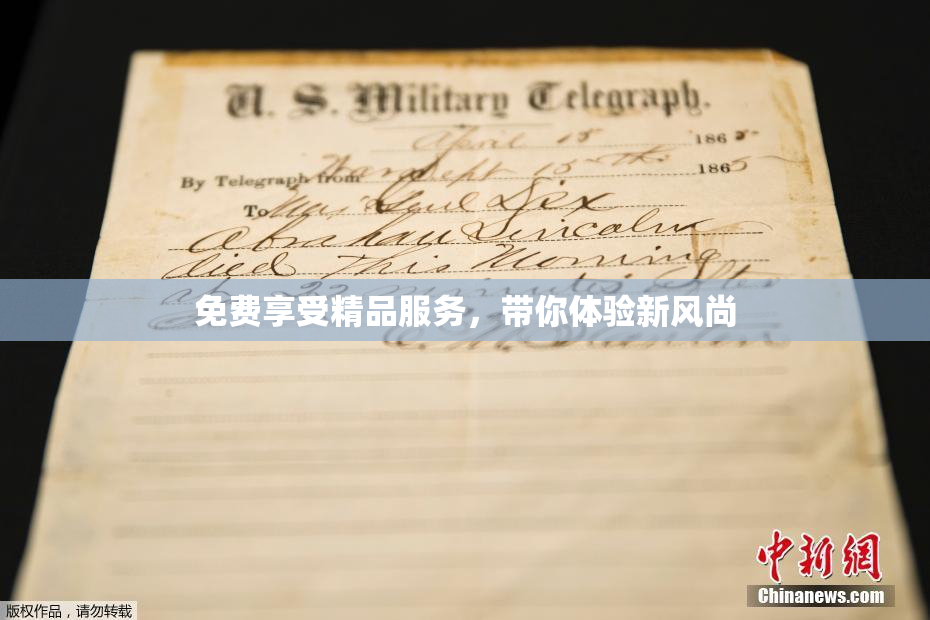 U. S. Military Telegraph.
April 15 1865
By Telegraph from War Dept 15th 1865
To Maj Genl Dix
Abraham Lincoln
died This Morning
at 22 minutes after
免费享受精品服务，带你体验新风尚
E. M. Stanton
中新网
Chinanews.com
版权作品，请勿转载